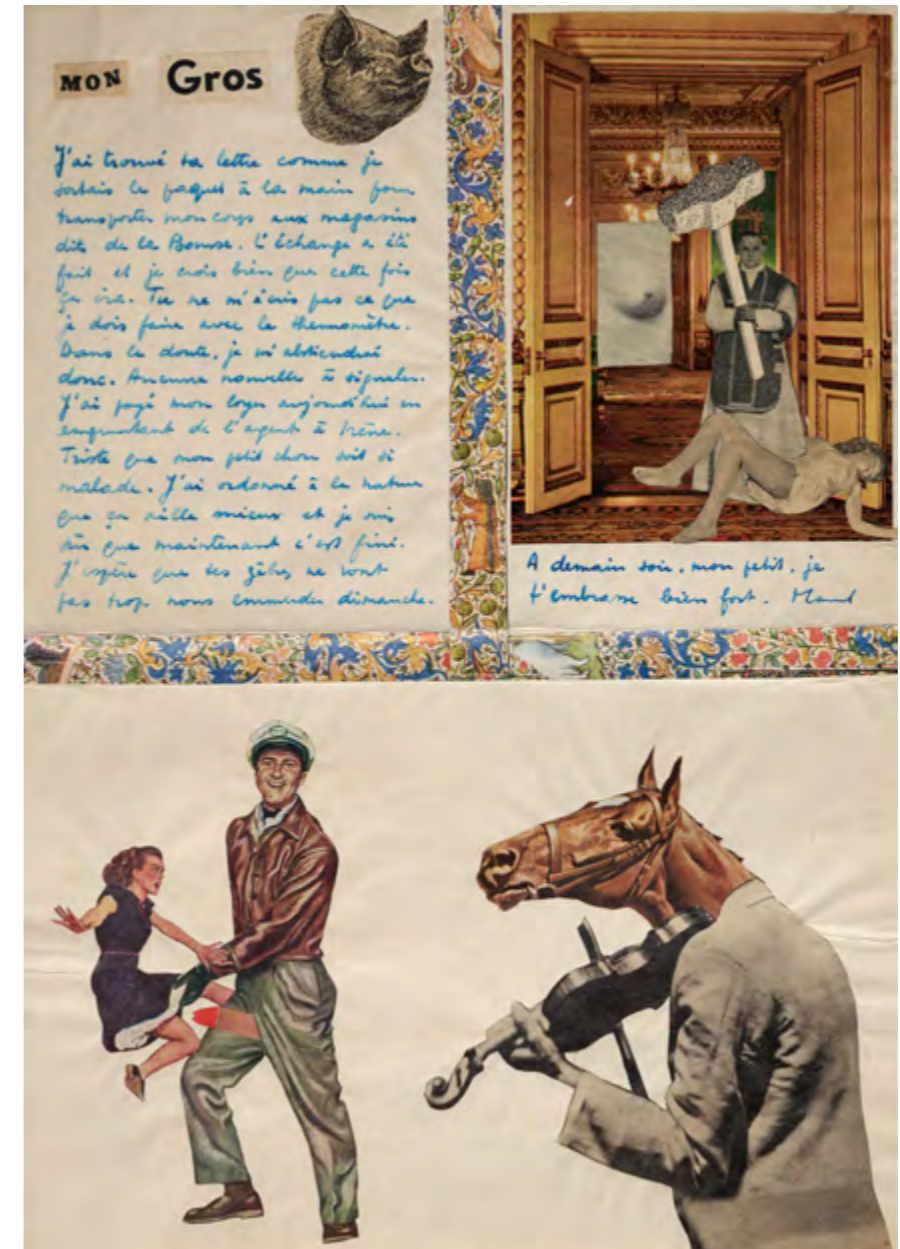 MON Gros
J'ai trouvé ta lettre comme je
sortais le paquet à la main pour
transporter mon corps aux magasins
dits de la Bourse. L'échange a été
fait et je crois bien que cette fois
ça ira. Tu ne m'écris pas ce que
je dois faire avec le thermomètre.
Dans le doute, je m'abstiendrai
donc. Aucune nouvelle à signaler.
J'ai payé mon loyer aujourd'hui en
empruntant de l'argent à Irène.
Triste que mon petit chou soit si
malade. J'ai ordonné à la nature
que ça aille mieux et je suis
sûr que maintenant c'est fini.
J'espère que tes gênes ne vont
pas trop nous emmerder dimanche.
A demain soir, mon petit, je
t'embrasse bien fort.